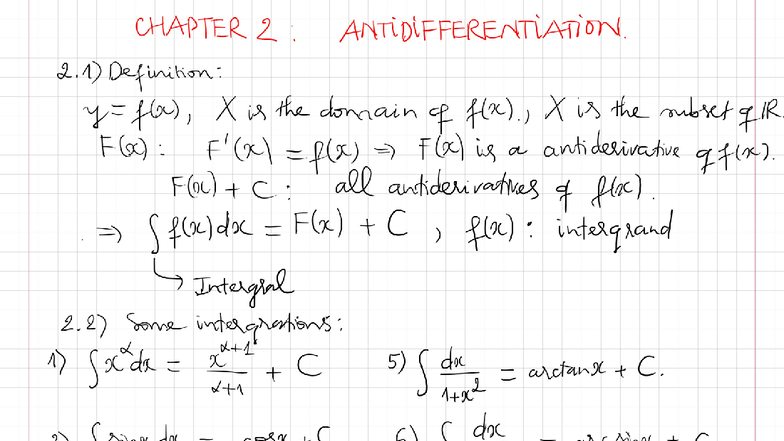 CHAPTER 2 : ANTIDIFFERENTIATION.
2.1) Definition:
y = f(x), X is the domain of f(x)., X is the subset of IR.
F(x) : F'(x) = f(x) => F(x) is a antiderivative of f(x).
F(x) + C : all antiderivatives of f(x).
=> ∫ f(x) dx = F(x) + C , f(x) : intergrand
↳ Intergral
2.2) Some intergrations:
1) ∫ x^α dx = x^(α+1) / (α+1) + C
5) ∫ dx / (1+x²) = arctanx + C.
∫ sinx dx = cosx + C
6) ∫ dx = arcsinx + C